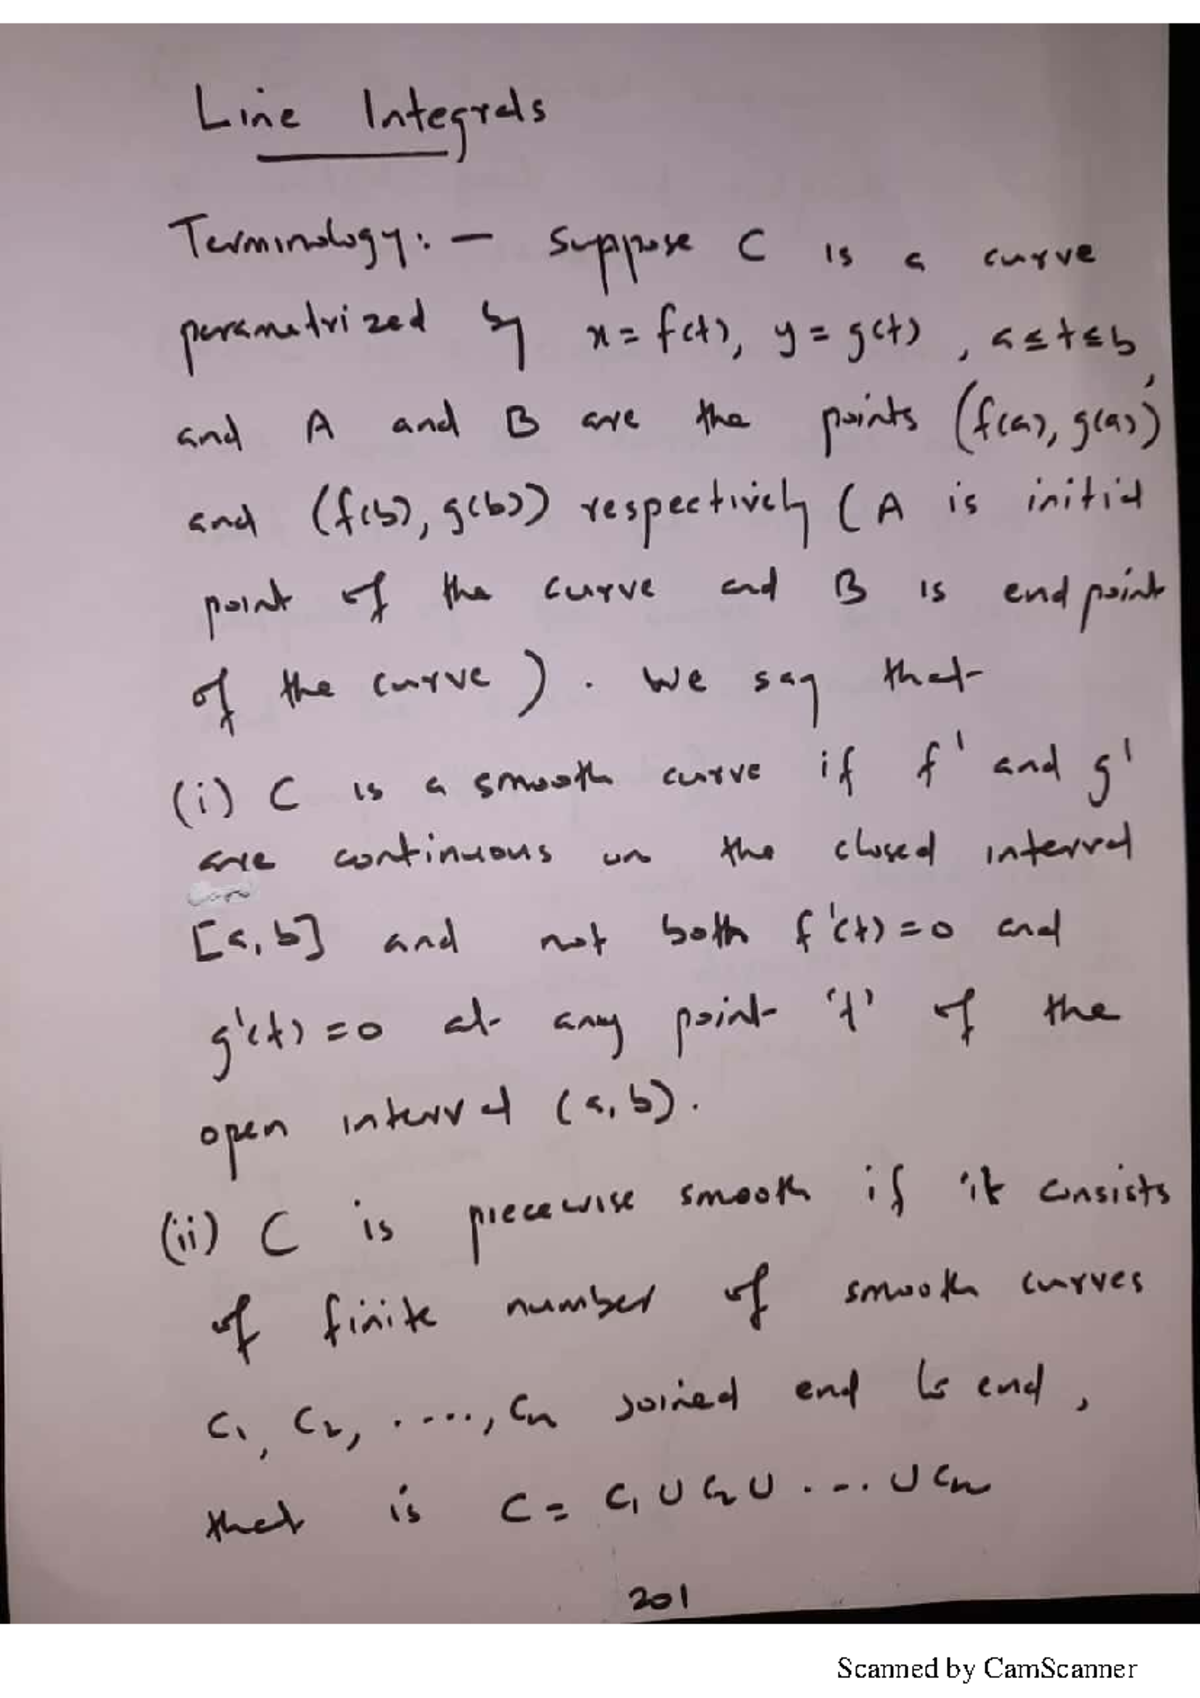 Line Integrals
Terminology: - suppose C is a curve
parametrized by x = f(t), y = g(t), a ≤ t ≤ b,
and A and B are the points (f(a), g(a))
and (f(b), g(b)) respectively (A is initial
point of the curve and B is end point
of the curve). We say that
(i) C is a smooth curve if f' and g'
are continuous on the closed interval
[a, b] and not both f'(t) = 0 and
g'(t) = 0 at any point 't' of the
open interval (a, b).
(ii) C is piecewise smooth if it consists
of finite number of smooth curves
C1, C2, ...., Cn joined end to end,
that is C = C1 ∪ C2 ∪ .... ∪ Cn
201
Scanned by CamScanner